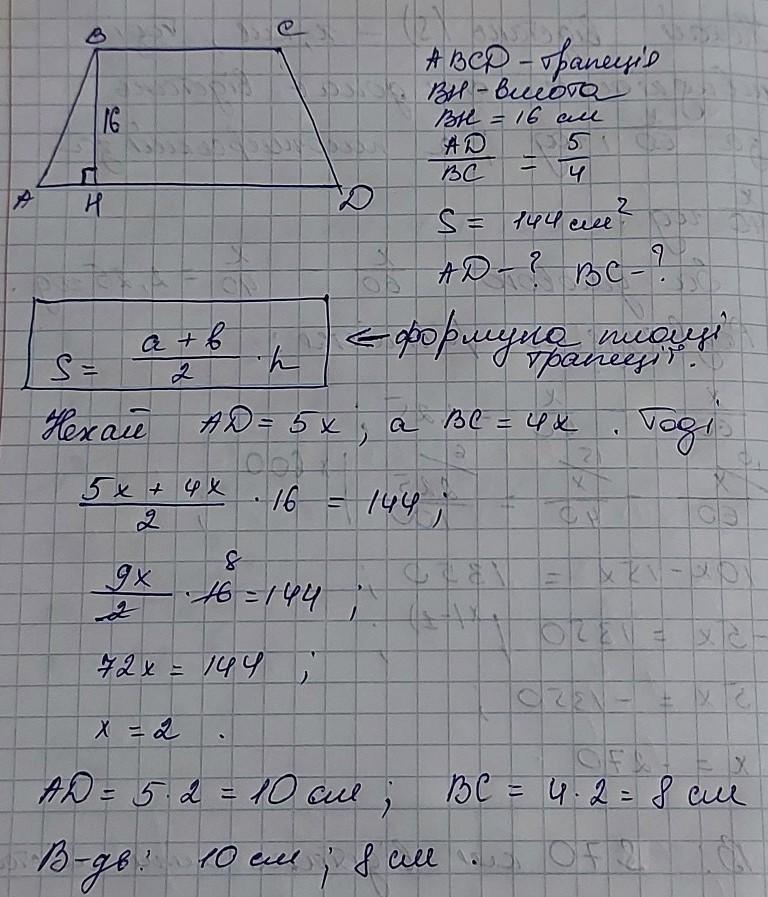 B C
16
A H D
ABCD - трапеція
BH - висота
BH = 16 см
AD/BC = 5/4
S = 144 см²
AD - ? BC - ?
S = (a + b)/2 · h ← формула площі
трапеції.
Нехай AD = 5x, а BC = 4x. Тоді
(5x + 4x)/2 · 16 = 144;
9x/2 · 16 8 = 144;
72x = 144;
x = 2.
AD = 5·2 = 10 см; BC = 4·2 = 8 см
В-дь: 10 см; 8 см.